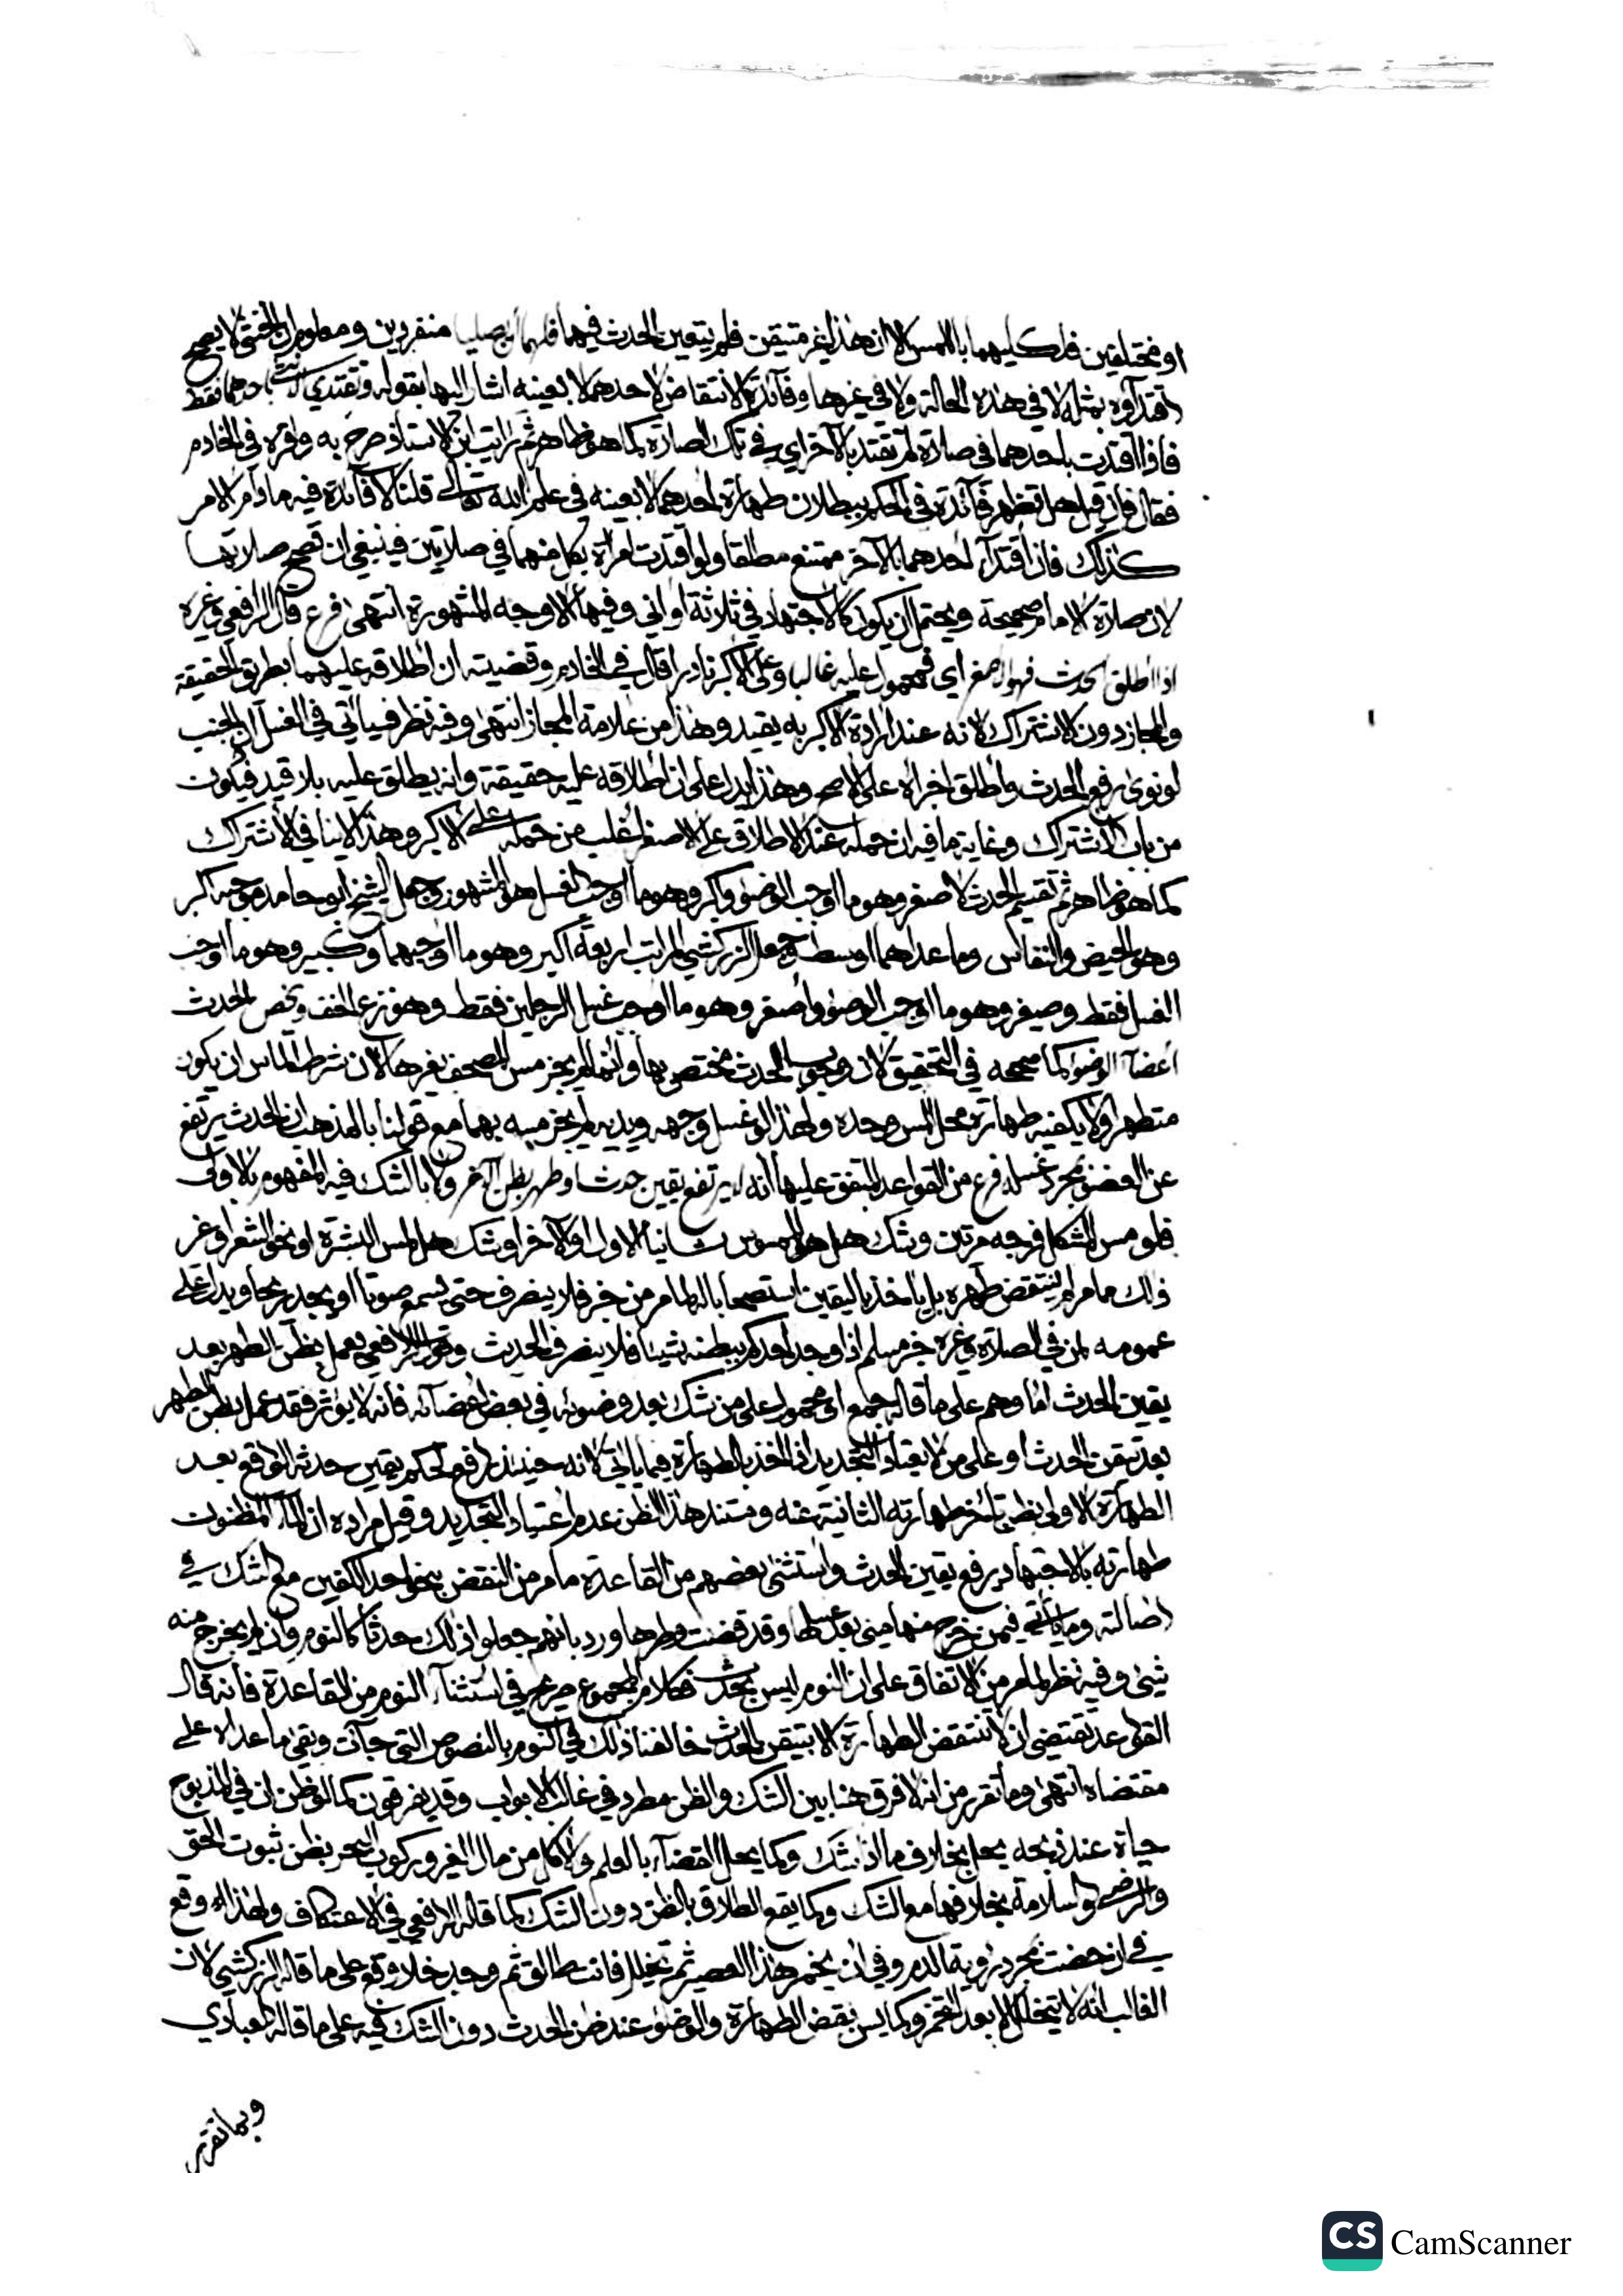 او مختلفين فلمس كليهما باللمس لا ان هذا غير متيقن فلم يتعين الحدث فيهما فلهما أن يصليا منفردين ومعلوم ان الخنثى لا يصح
اقتداؤه بمثله لا في هذه الحالة ولا في غيرها وفائدة الانتقاض لاحدهما لا بعينه اشار اليها بقوله وتقتدي باحدهما فقط
فاذا اقتدت باحدهما في صلاة لم تقتد بالآخر اي في تلك الصلاة كما هو ظاهر ثم رايت ابن الاستاذ صرح به واقره في الخادم
فقال فان قيل هل تظهر فائدة في الحكم ببطلان طهارة احدهما لا بعينه في علم الله تعالى قلنا لا فائدة فيه ما دام الامر
كذلك فان اقتداء احدهما بالآخر ممتنع مطلقا ولو اقتدت امراة بكل منهما في صلاتين فينبغي ان تصح صلاتها
لان صلاة الامام صحيحة ويحتمل ان يكون كالاجتهاد في ثلاثة اواني وفيها الاوجه المشهورة انتهى فرع قال الرافعي وغيره
اذا اطلق الحدث فهو الاصغر اي فمحمول عليه غالبا وعلى الاكبر نادرا قال في الخادم وقضيته ان اطلاقه عليهما بطريق الحقيقة
والمجاز دون الاشتراك لانه عند ارادة الاكبر به يقيد وهذا من علامة المجاز انتهى وفيه نظر فسياتي في الغسل ان الجنب
لو نوى رفع الحدث واطلق اجزاه على الاصح وهذا يدل على ان اطلاقه عليه حقيقة وانه يطلق عليه بلا قيد فيكون
من باب الاشتراك وغاية ما فيه ان حمله عند الاطلاق على الاصغر اغلب من حمله على الاكبر وهذا لا ينافي الاشتراك
كما هو ظاهر ثم تقسيم الحدث لاصغر وهو ما اوجب الوضوء واكبر وهو ما اوجب الغسل هو المشهور وجعل الشيخ ابو حامد موجبه اكبر
وهو الحيض والنفاس وما عداهما اوسط وجعل الزركشي المراتب اربعة اكبر وهو ما اوجبهما وكبير وهو ما اوجب
الغسل فقط وصغير وهو ما اوجب الوضوء واصغر وهو ما اوجب غسل الرجلين فقط وهو نزع الخف ويخص الحدث
اعضاء الوضوء كما صححه في التحقيق لان وجوب الحدث مختص بها وانما لم يجز مس المصحف بغيرها لان شرط الماس ان يكون
متطهرا ولا يكفيه طهارة محل المس وحده ولهذا لو غسل وجهه ويديه لم يجز مسه بهما مع قولنا بالمذهب ان الحدث يرتفع
عن العضو بمجرد غسله فرع من القواعد المتفق عليها أنه لا يرتفع يقين حدث او طهر بظن الآخر ولا بالشك فيه المفهوم بالاولى
فلو مس المشكل فرجه مرتين وشك هل هو الممسوس ثانيا الاول او الآخر او شك هل لمس البشرة او نحو الشعر او غير
ذلك مما مر لم ينتقض طهره بل ياخذ باليقين استصحابا له لما مر من خبر فلا ينصرف حتى يسمع صوتا او يجد ريحا ويدل على
عمومه لمن في الصلاة وغيره خبر مسلم اذا وجد احدكم ببطنه شيئا فلا ينصرف الحديث وقول الرافعي يعمل بظن الطهر بعد
يقين الحدث اما وهم على ما قاله جمع او محمول على من شك بعد وضوئه في بعض اعضائه فانه لا يؤثر فقد عمل بظن الطهر
بعد تيقن الحدث او على من لا يعتاد التجديد اذا اخذ بالطهارة فيما ياتي لانه حينئذ رفع الحكم بيقين حدثه الواقع بعد
الطهارة الاولى بظن تاخر طهارته الثانية عنه ومستند هذا الظن عدم اعتياد التجديد وقيل مراده ان الماء المظنون
طهارته بالاجتهاد يرفع يقين الحدث واستثنى بعضهم من القاعدة ما مر من النقض بنحو احد الكفين مع الشك في
اصالته وما ياتي فيمن خرج منها مني بعد غسلها وقد قضت وطرها ورد بانهم جعلوا ذلك حدثا كالنوم وان لم يخرج منه
شيء وفيه نظر لما مر من الاتفاق على ان النوم ليس بحدث فكلام المجموع صريح في استثناء النوم من القاعدة فانه قال
القواعد تقتضي ان لا تنتقض الطهارة الا بتيقن الحدث خالفنا ذلك في النوم بالنصوص التي جاءت وبقي ما عداه على
مقتضاه انتهى وما تقرر من انه لا فرق هنا بين الشك والظن مطرد في غالب الابواب وقد يفرقون كما لو ظن ان في المذبوح
حياة عند ذبحه يحل بخلاف ما اذا شك وكما يحل القضاء بالعلم والاكل من مال الغير وركوب البحر بظن ثبوت الحق
والرضى والسلامة بخلافها مع الشك وكما يقع الطلاق بالظن دون الشك كما قاله الرافعي في الاعتكاف ولهذا وقع
في ان حضت بمجرد رؤية الدم وفي ان تخمر هذا العصير ثم تخلل فانت طالق ثم وجد خلا وقع على ما قاله الزركشي لان
الغالب انه لا يتخلل الا بعد التخمر وكما يسن نقض الطهارة والوضوء عند ظن الحدث دون الشك فيه على ما قاله العبادي
وبما تقرر
CS CamScanner